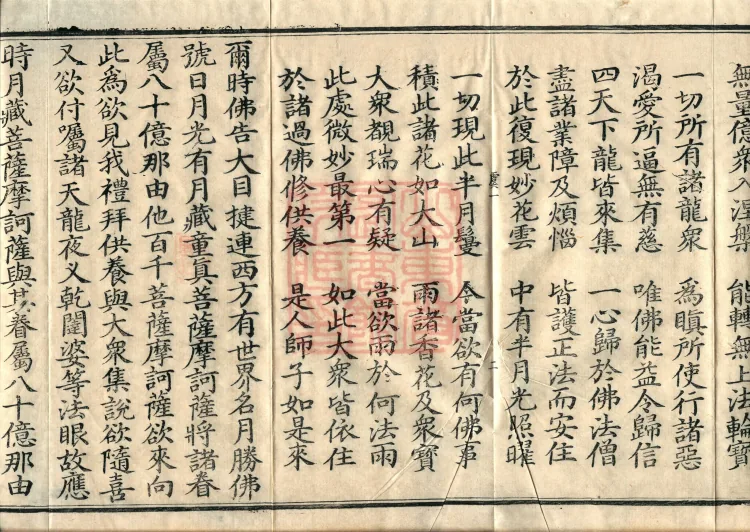 無量億衆入涅槃　能轉無上法輪寶
一切所有諸龍衆　為瞋所使行諸惡
渴愛所逼無有慈　唯佛能益令歸信
四天下龍皆來集　一心歸於佛法僧
盡諸業障及煩惱　皆護正法而安住
於此復現妙花雲　中有半月光照曜
一切現此半月鬘　今當欲有何佛事
積此諸花如大山　雨諸香花及衆寶
大衆覩瑞心有疑　當欲雨於何法雨
此處微妙最第一　如此大衆皆依住
於諸過佛修供養　是人師子如是來
爾時佛告大目揵連西方有世界名月勝佛
號日月光有月藏童真菩薩摩訶薩將諸眷
屬八十億那由他百千菩薩摩訶薩欲來向
此為欲見我禮拜供養與大衆集說欲隨喜
又欲付囑諸天龍夜叉乾闥婆等法眼故應
時月藏菩薩摩訶薩與其眷屬八十億那由